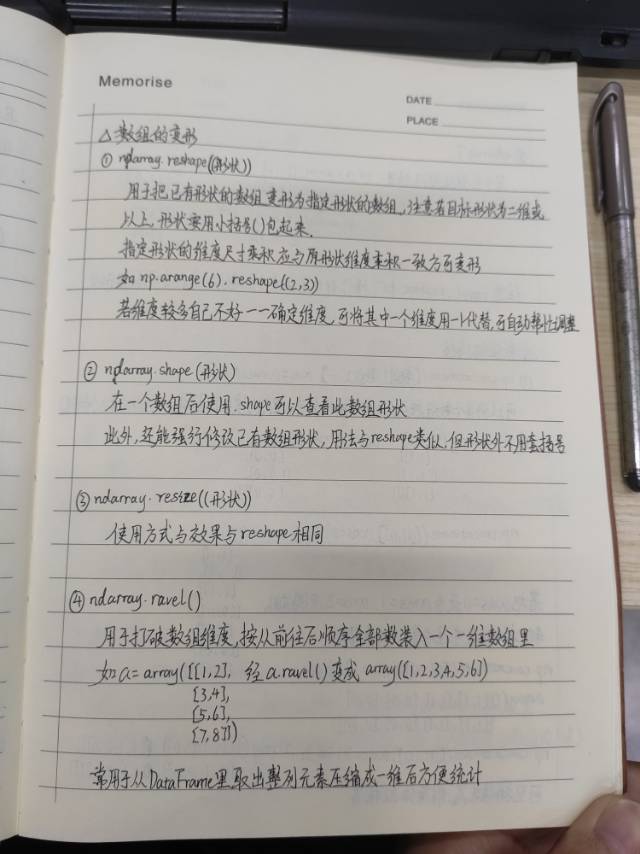 Memorise
DATE
PLACE
△数组的变形
① ndarray.reshape((形状))
用于把已有形状的数组变形为指定形状的数组,注意若目标形状为二维或
以上,形状要用小括号()包起来.
指定形状的维度尺寸乘积应与原形状维度乘积一致方可变形
如 np.arange(6).reshape((2,3))
若维度较多自己不好一一确定维度,可将其中一个维度用-1代替,可自动帮忙调整
② ndarray.shape (形状)
在一个数组后使用.shape可以查看此数组形状
此外,还能强行修改已有数组形状,用法与reshape类似,但形状外不用套括号
③ ndarray.resize((形状))
使用方式与效果与reshape相同
④ ndarray.ravel()
用于打破数组维度,按从前往后顺序全部数装入一个一维数组里
如a=array([[1,2], 经a.ravel()变成 array([1,2,3,4,5,6])
[3,4],
[5,6],
[7,8]])
常用于从DataFrame里取出整列元素压缩成一维后方便统计